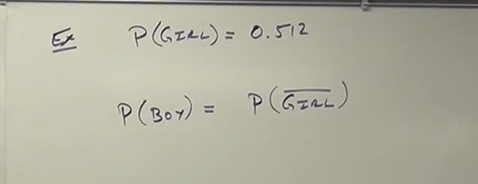 Ex P(GIRL) = 0.512
P(BOY) = P(G̅I̅R̅L̅)